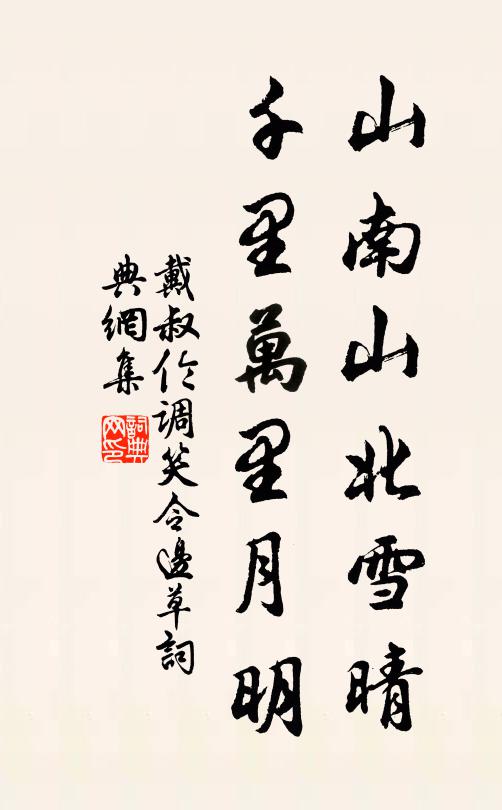 山南山北雪晴
千里萬里月明
戴叔伦調笑令邊草詞
典網集
詞典网印